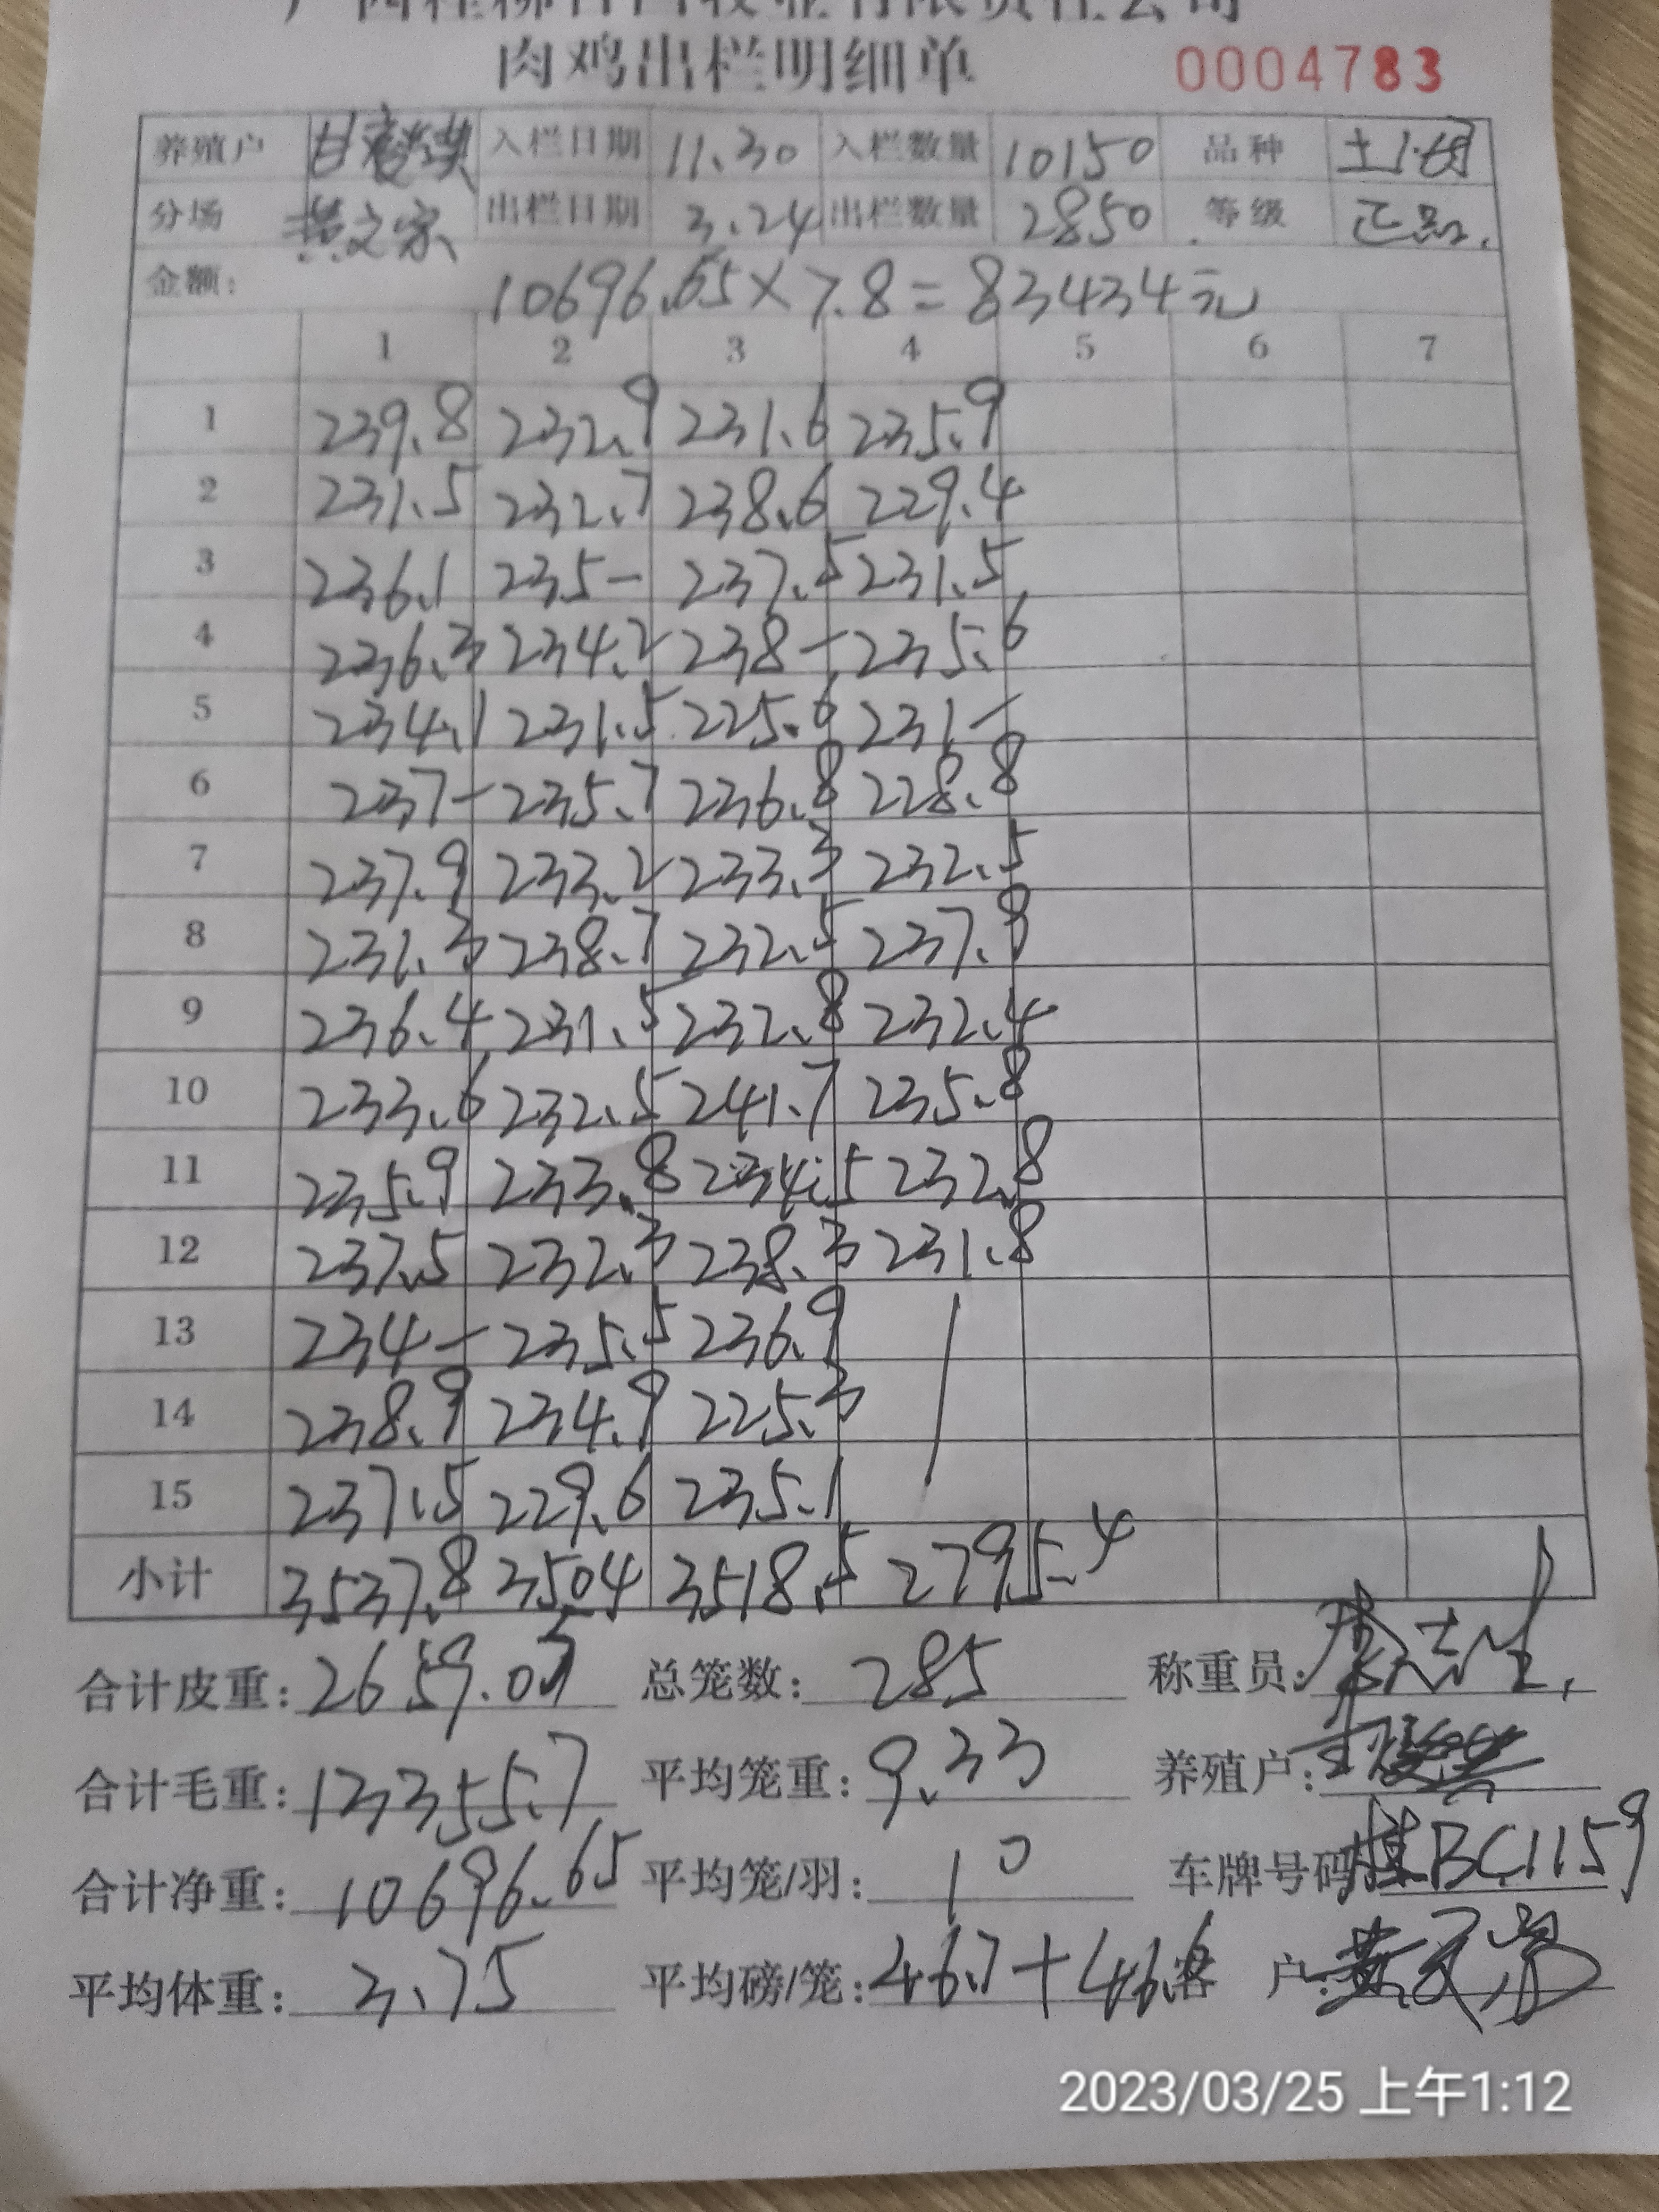 肉鸡出栏明细单 0004783
养殖户 入栏日期 11.30 入栏数量 10150 品种 土1.
分场 黄文家 出栏日期 3.24 出栏数量 2850 等级 正品.
金额: 10696.65×7.8=83434元
1 2 3 4 5 6 7
1 239.8 232.9 231.6 235.9
2 231.5 232.7 238.6 229.4
3 236.1 235- 237.5 231.5
4 236.3 234.2 238- 235.6
5 234.1 231.5 225.6 231-
6 237- 235.7 236.8 228.8
7 237.9 233.2 233.3 232.5
8 231.3 238.7 232.5 237.9
9 236.4 231.5 232.8 232.4
10 233.6 232.5 241.7 235.8
11 235.9 233.8 234.5 232.8
12 237.5 232.3 238.3 231.8
13 234- 235.5 236.9
14 238.9 234.9 225.3
15 237.5 229.6 235.1
小计 3537.8 3504 3518.5 2795.4
合计皮重: 2659.05 总笼数: 285 称重员:
合计毛重: 13355.7 平均笼重: 9.33 养殖户:
合计净重: 10696.65 平均笼/羽: 10 车牌号码 桂BC1159
平均体重: 3.75 平均磅/笼: 46.7+46.6 客 户:
2023/03/25 上午1:12